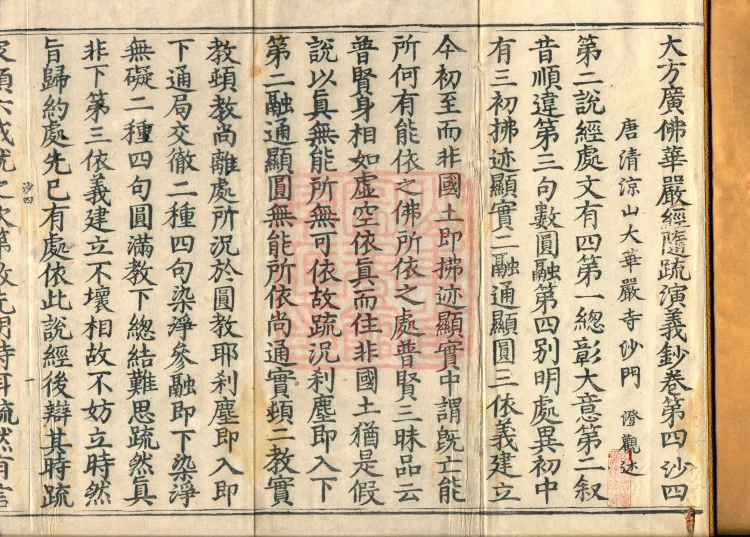 大方廣佛華嚴經隨疏演義鈔卷第四 沙四
唐清涼山大華嚴寺沙門 澄觀述
第二說經處文有四第一總彰大意第二叙
昔順違第三句數圓融第四別明處異初中
有三初拂迹顯實二融通顯圓三依義建立
今初至而非國土即拂迹顯實中謂旣亡能
所何有能依之佛所依之處普賢三昧品云
普賢身相如虛空依真而住非國土猶是假
說以真無能所無可依故疏況剎塵即入下
第二融通顯圓無能所依尚通實頓二教實
教頓教尚離處所況於圓教耶剎塵即入即
下通局交徹二種四句染淨參融即下染淨
無礙二種四句圓滿教下總結難思疏然真
非下第三依義建立不壞相故不妨立時然
旨歸約處先已有處依此說經後辯其時疏
沙四 一